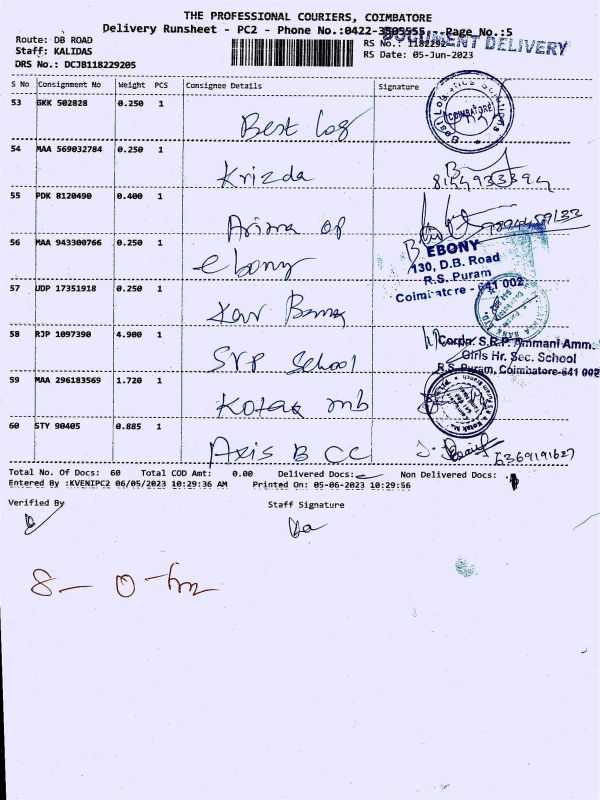 THE PROFESSIONAL COURIERS, COIMBATORE
Delivery Runsheet - PC2 - Phone No.:0422-3505555 Page No.:5
DOCUMENT DELIVERY
Route: DB ROAD
RS No.: 1182292
Staff: KALIDAS
RS Date: 05-Jun-2023
DRS No.: DCJB118229205
S No Consignment No Weight PCS Consignee Details Signature
53 GKK 502828 0.250 1
Best Log
COIMBATORE
54 MAA 569032784 0.250 1
Krizda
55 PDK 8120490 0.400 1
56 MAA 943300766 0.250 1
ebony
EBONY
130, D.B. Road
R.S. Puram
Coimbatore - 641 002
57 UDP 17351918 0.250 1
58 RJP 1097390 4.900 1
SRP School
S.R.P. Ammani Amm.
Girls Hr. Sec. School
R.S. Puram, Coimbatore-641 002
59 MAA 296183569 1.720 1
Kotak mb
60 STY 90405 0.885 1
Axis B CC
6369191627
Total No. Of Docs: 60 Total COD Amt: 0.00 Delivered Docs: Non Delivered Docs:
Entered By :KVENIPC2 06/05/2023 10:29:36 AM Printed On: 05-06-2023 10:29:56
Verified By Staff Signature